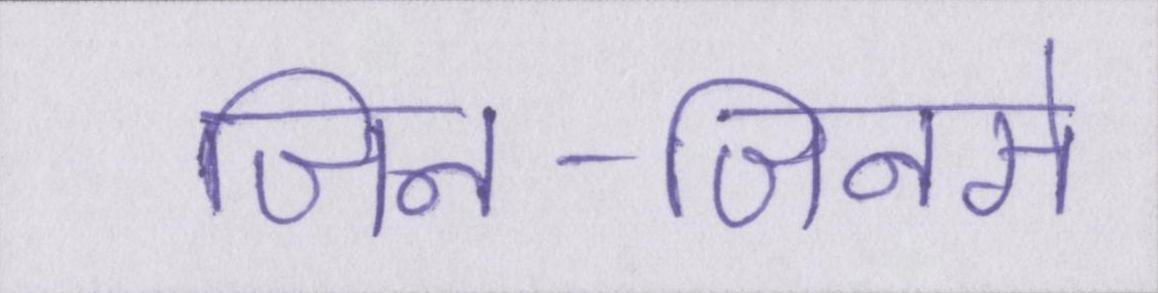 जिन-जिनसे